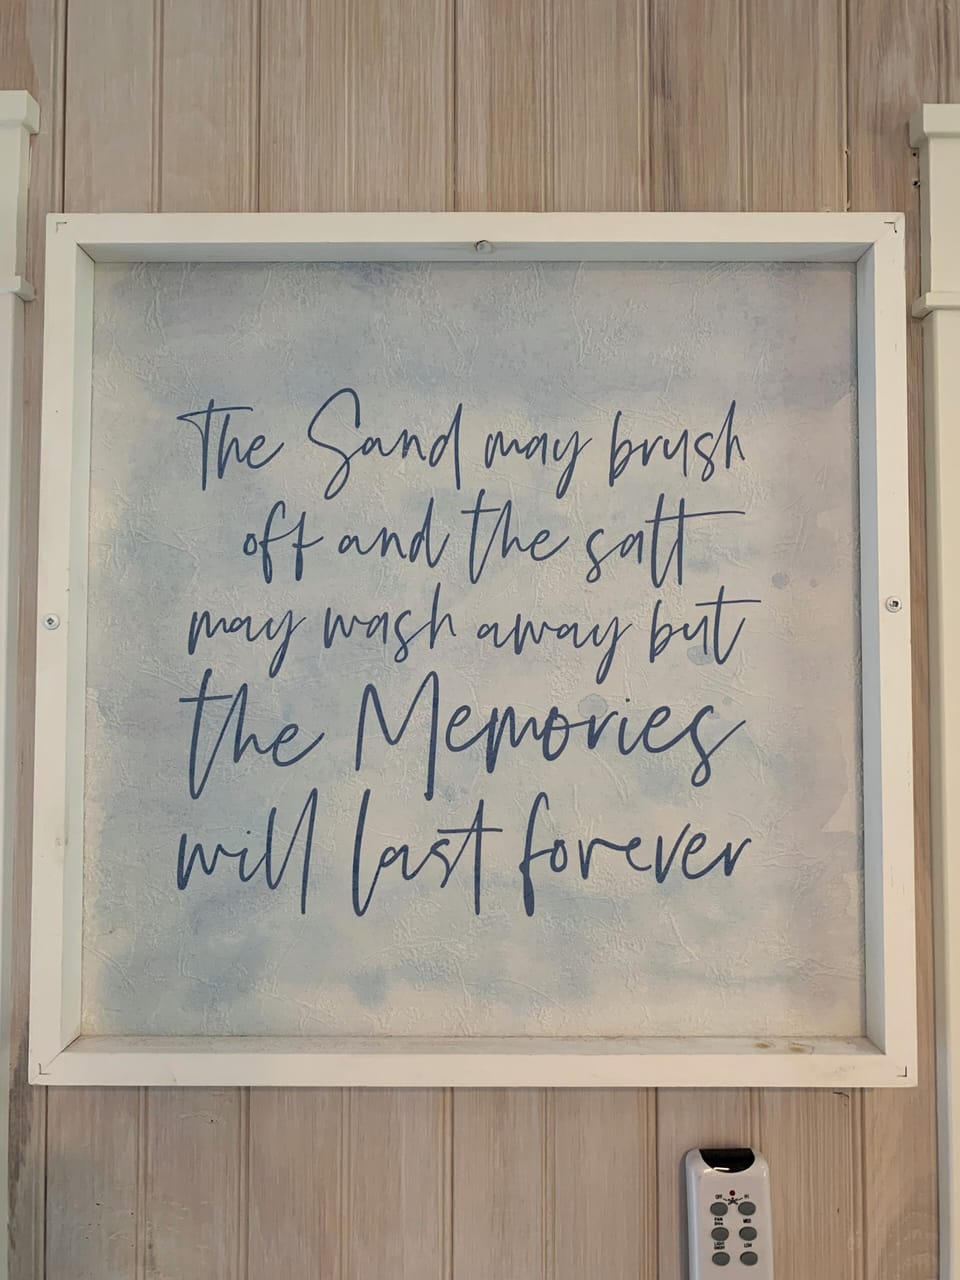 The Sand may brush
off and the salt
may wash away but
the Memories
will last forever
OFF HI
MED
LOW